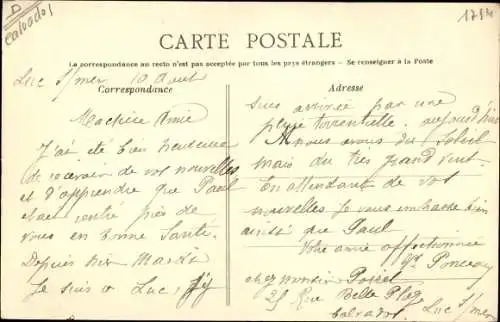 D
Calvados
1714
CARTE POSTALE
La correspondance au recto n'est pas acceptée par tous les pays étrangers — Se renseigner à la Poste
Correspondance
Luc s/mer 10 Aout
Ma chère Amie
J'ai été bien heureuse
de recevoir de vos nouvelles
et d'apprendre que Paul
était rentré près de
vous en bonne Santé.
Depuis hier Mardi
Je suis à Luc, j'y
Adresse
suis arrivée par une
pluie torrentielle, aujourd'hui
nous avons du Soleil
mais du très grand vent.
En attendant de vos
nouvelles Je vous embrasse bien
ainsi que Paul
Votre amie affectionnée
Ponceau
chez monsieur Poiret
25 Rue Belle Plage
Luc s/mer
Calvados